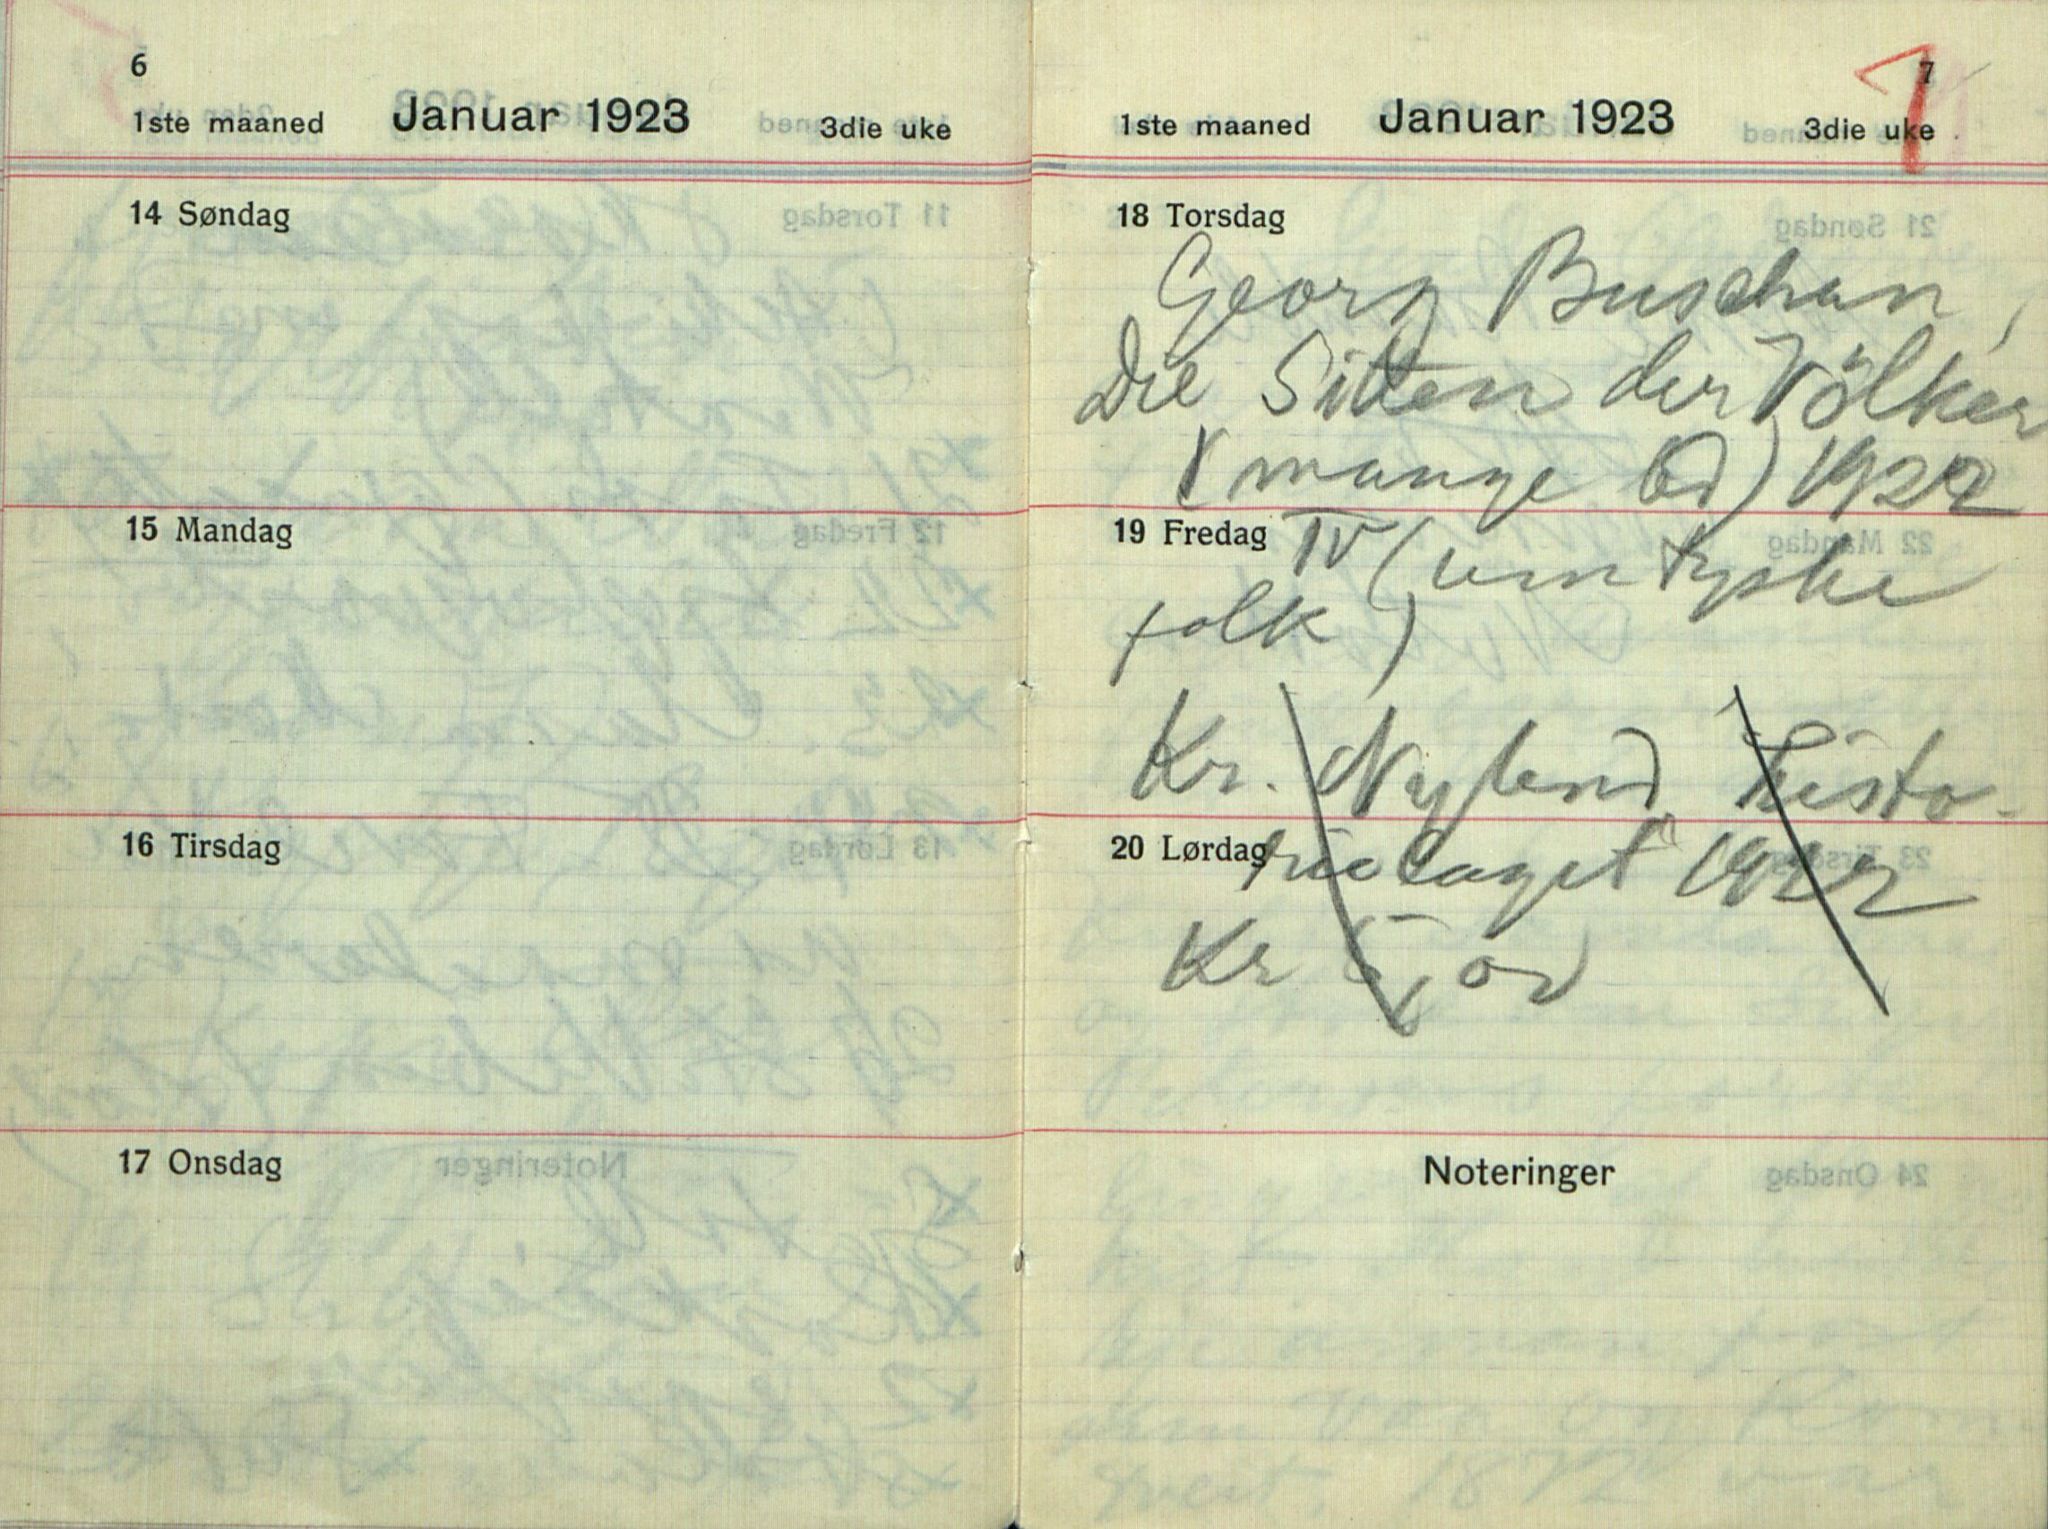 6
1ste maaned Januar 1923 3die uke
14 Søndag
15 Mandag
16 Tirsdag
17 Onsdag
7
1ste maaned Januar 1923 3die uke
18 Torsdag
Georg Buschan,
Die Sitten der Völker
(mange bd) 1922
19 Fredag IV (um tyske
folk)
Kr. Nyland, histo-
20 Lørdag rielaget 1922
Kr
Noteringer